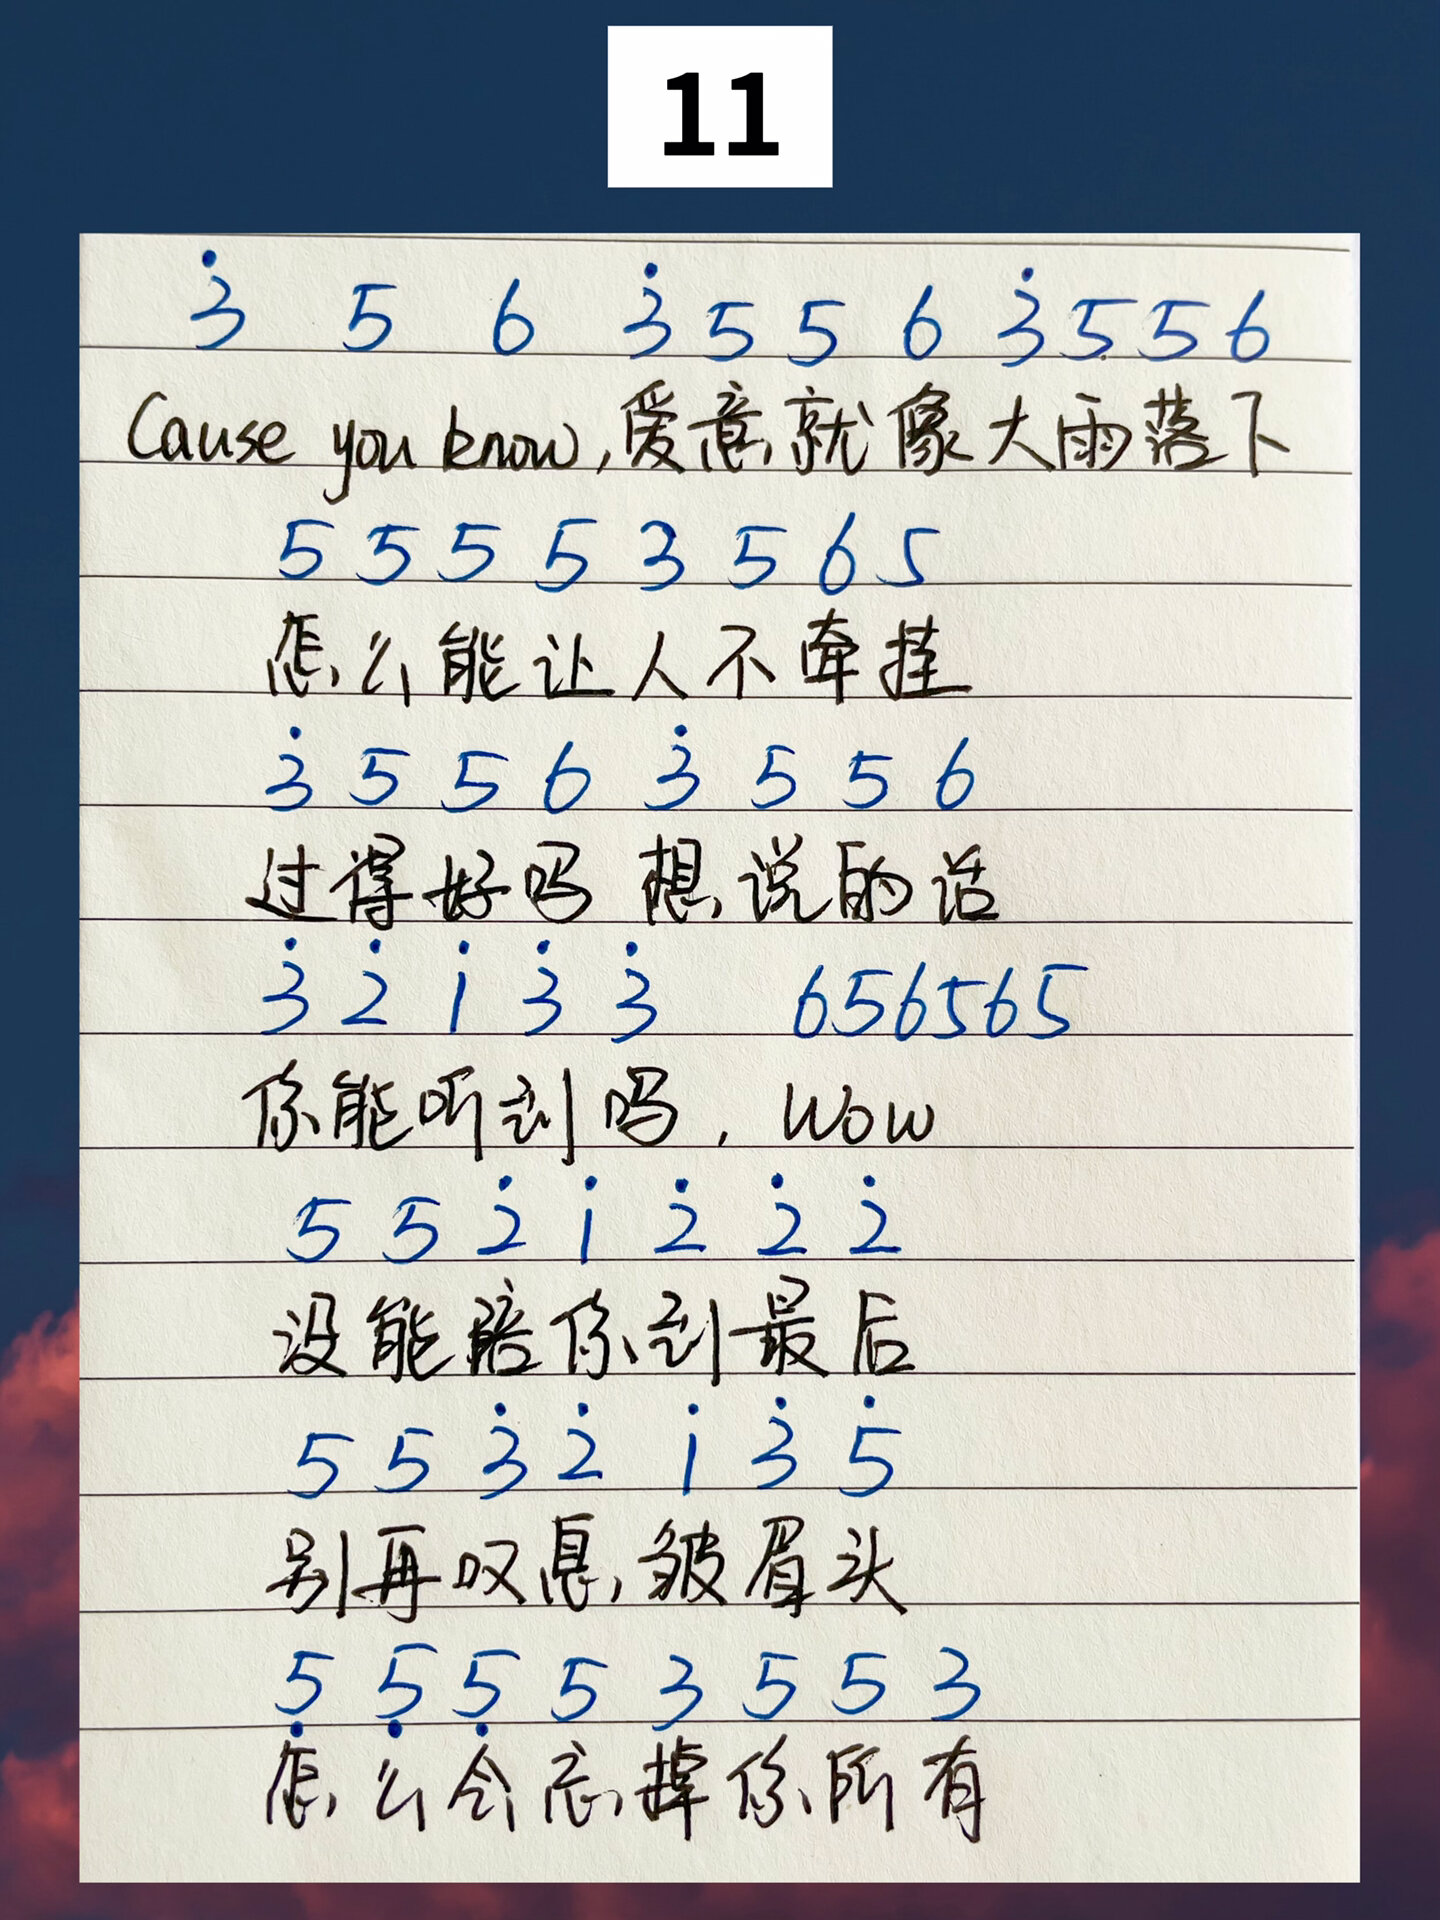 11
3̇ 5 6 3̇ 5 5 6 3̇ 5 5 6
Cause you know,爱意就像大雨落下
5 5 5 5 3 5 6 5
怎么能让人不牵挂
3̇ 5 5 6 3̇ 5 5 6
过得好吗 想说的话
3̇ 2̇ 1̇ 3̇ 3̇ 656565
你能听到吗, Wow
5 5 2̇ 1̇ 2̇ 2̇ 2̇
没能陪你到最后
5 5 3̇ 2̇ 1̇ 3̇ 5̇
别再叹息皱眉头
5̣ 5̣ 5̣ 5 3 5 5 3
怎么会忘掉你所有